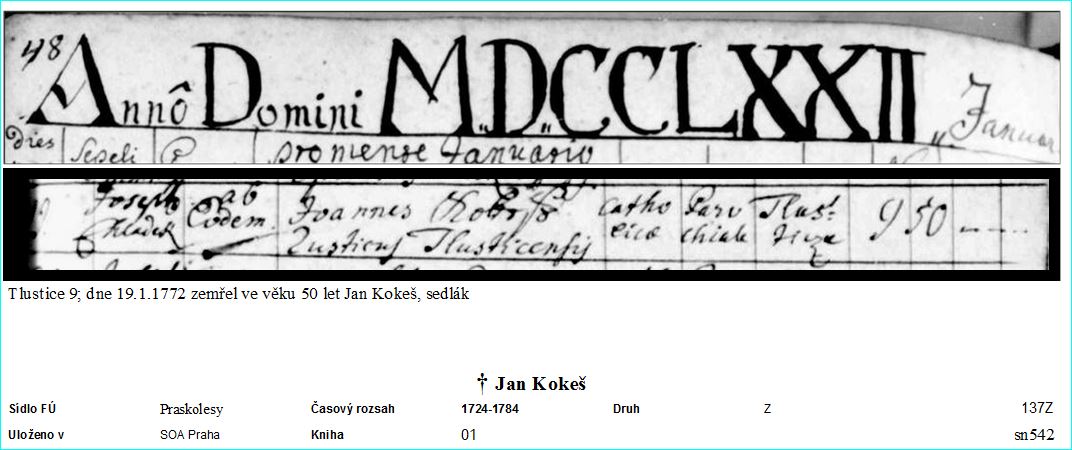 48
Annô Domini M.D.CCLXXII
Januar
dies Sepeli
pro mense Januario
Joseph ab Joannes Catho Paro Tlust
Eodem lica chiale 9 50
Rusticus Tlusticensis
Tlustice 9; dne 19.1.1772 zemřel ve věku 50 let Jan Kokeš, sedlák
† Jan Kokeš
Sídlo FÚ Praskolesy Časový rozsah 1724-1784 Druh Z 137Z
Uloženo v SOA Praha Kniha 01 sn542